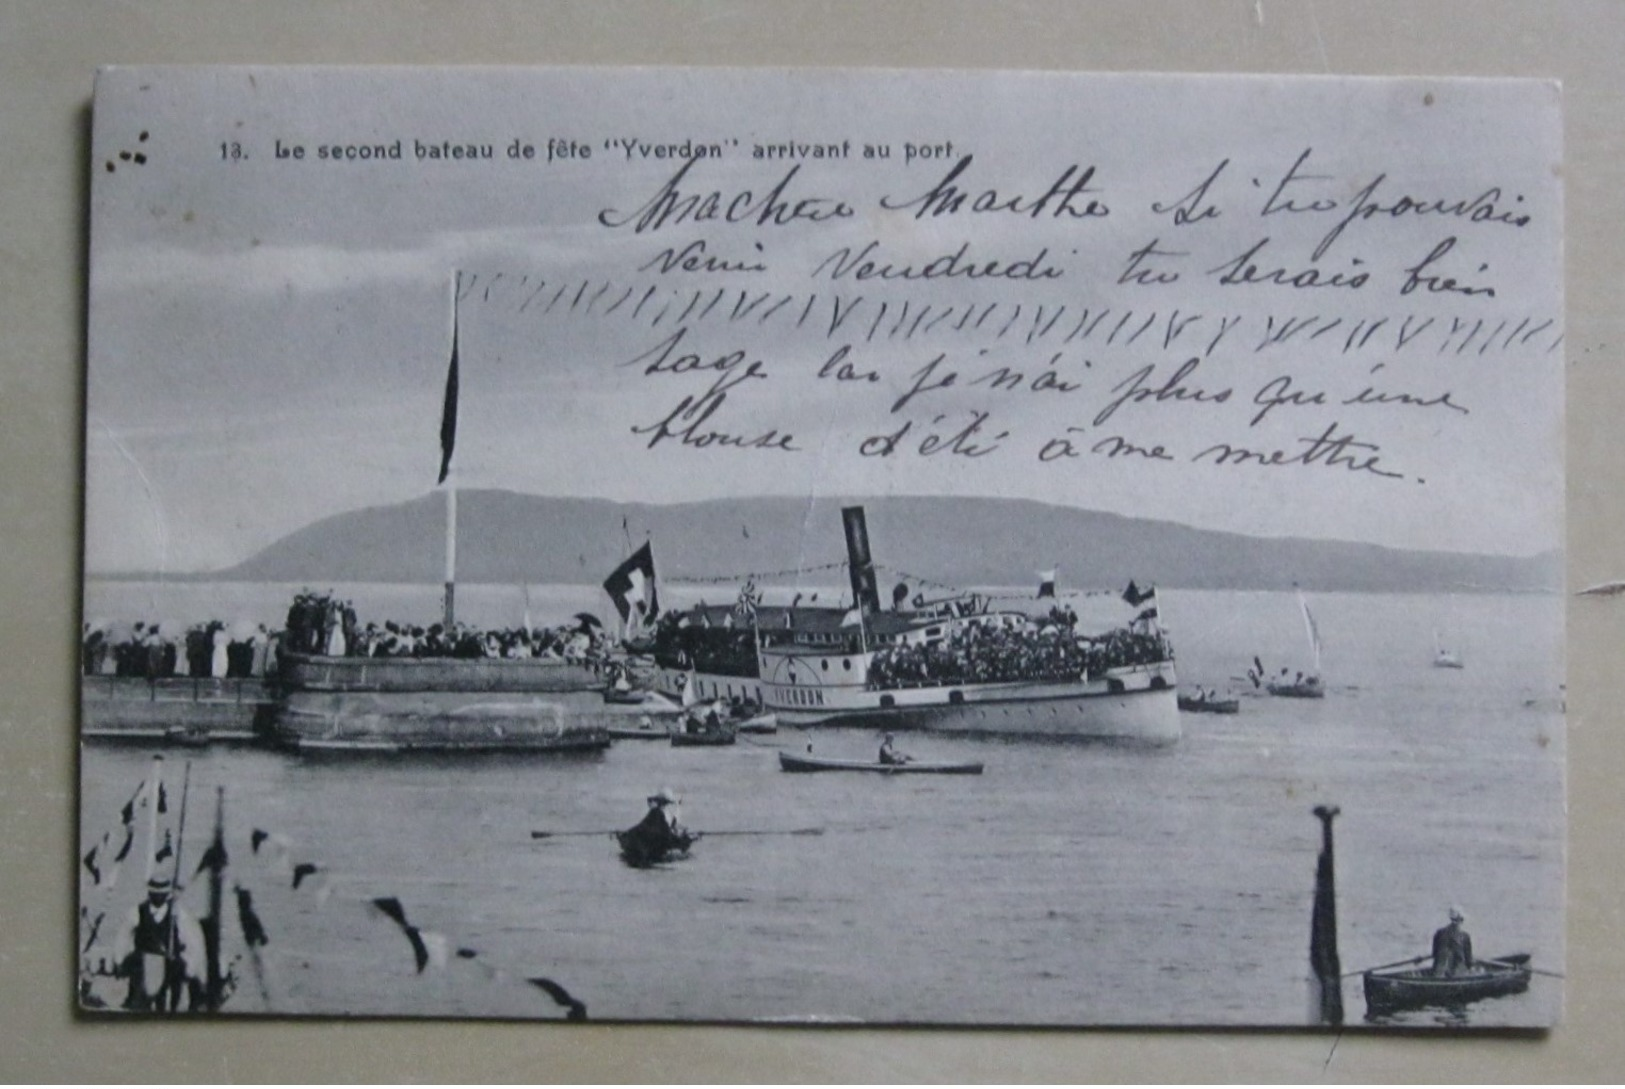 13. Le second bateau de fête "Yverdon" arrivant au port.
Ma chère Marthe Si tu pouvais
venir Vendredi tu serais bien
sage car je n'ai plus qu'une
blouse d'été à me mettre.
YVERDON